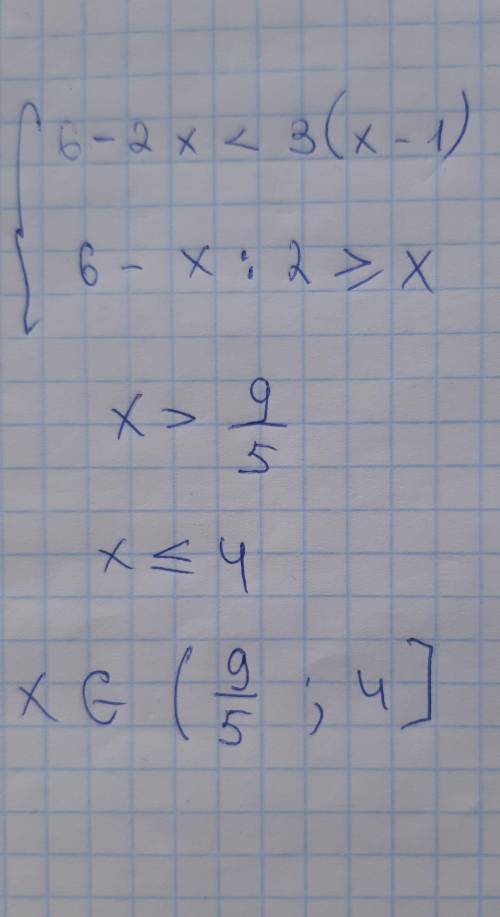 6 - 2x < 3(x - 1)
6 - x : 2 ≥ x
x > 9/5
x ≤ 4
x ∈ (9/5 ; 4]